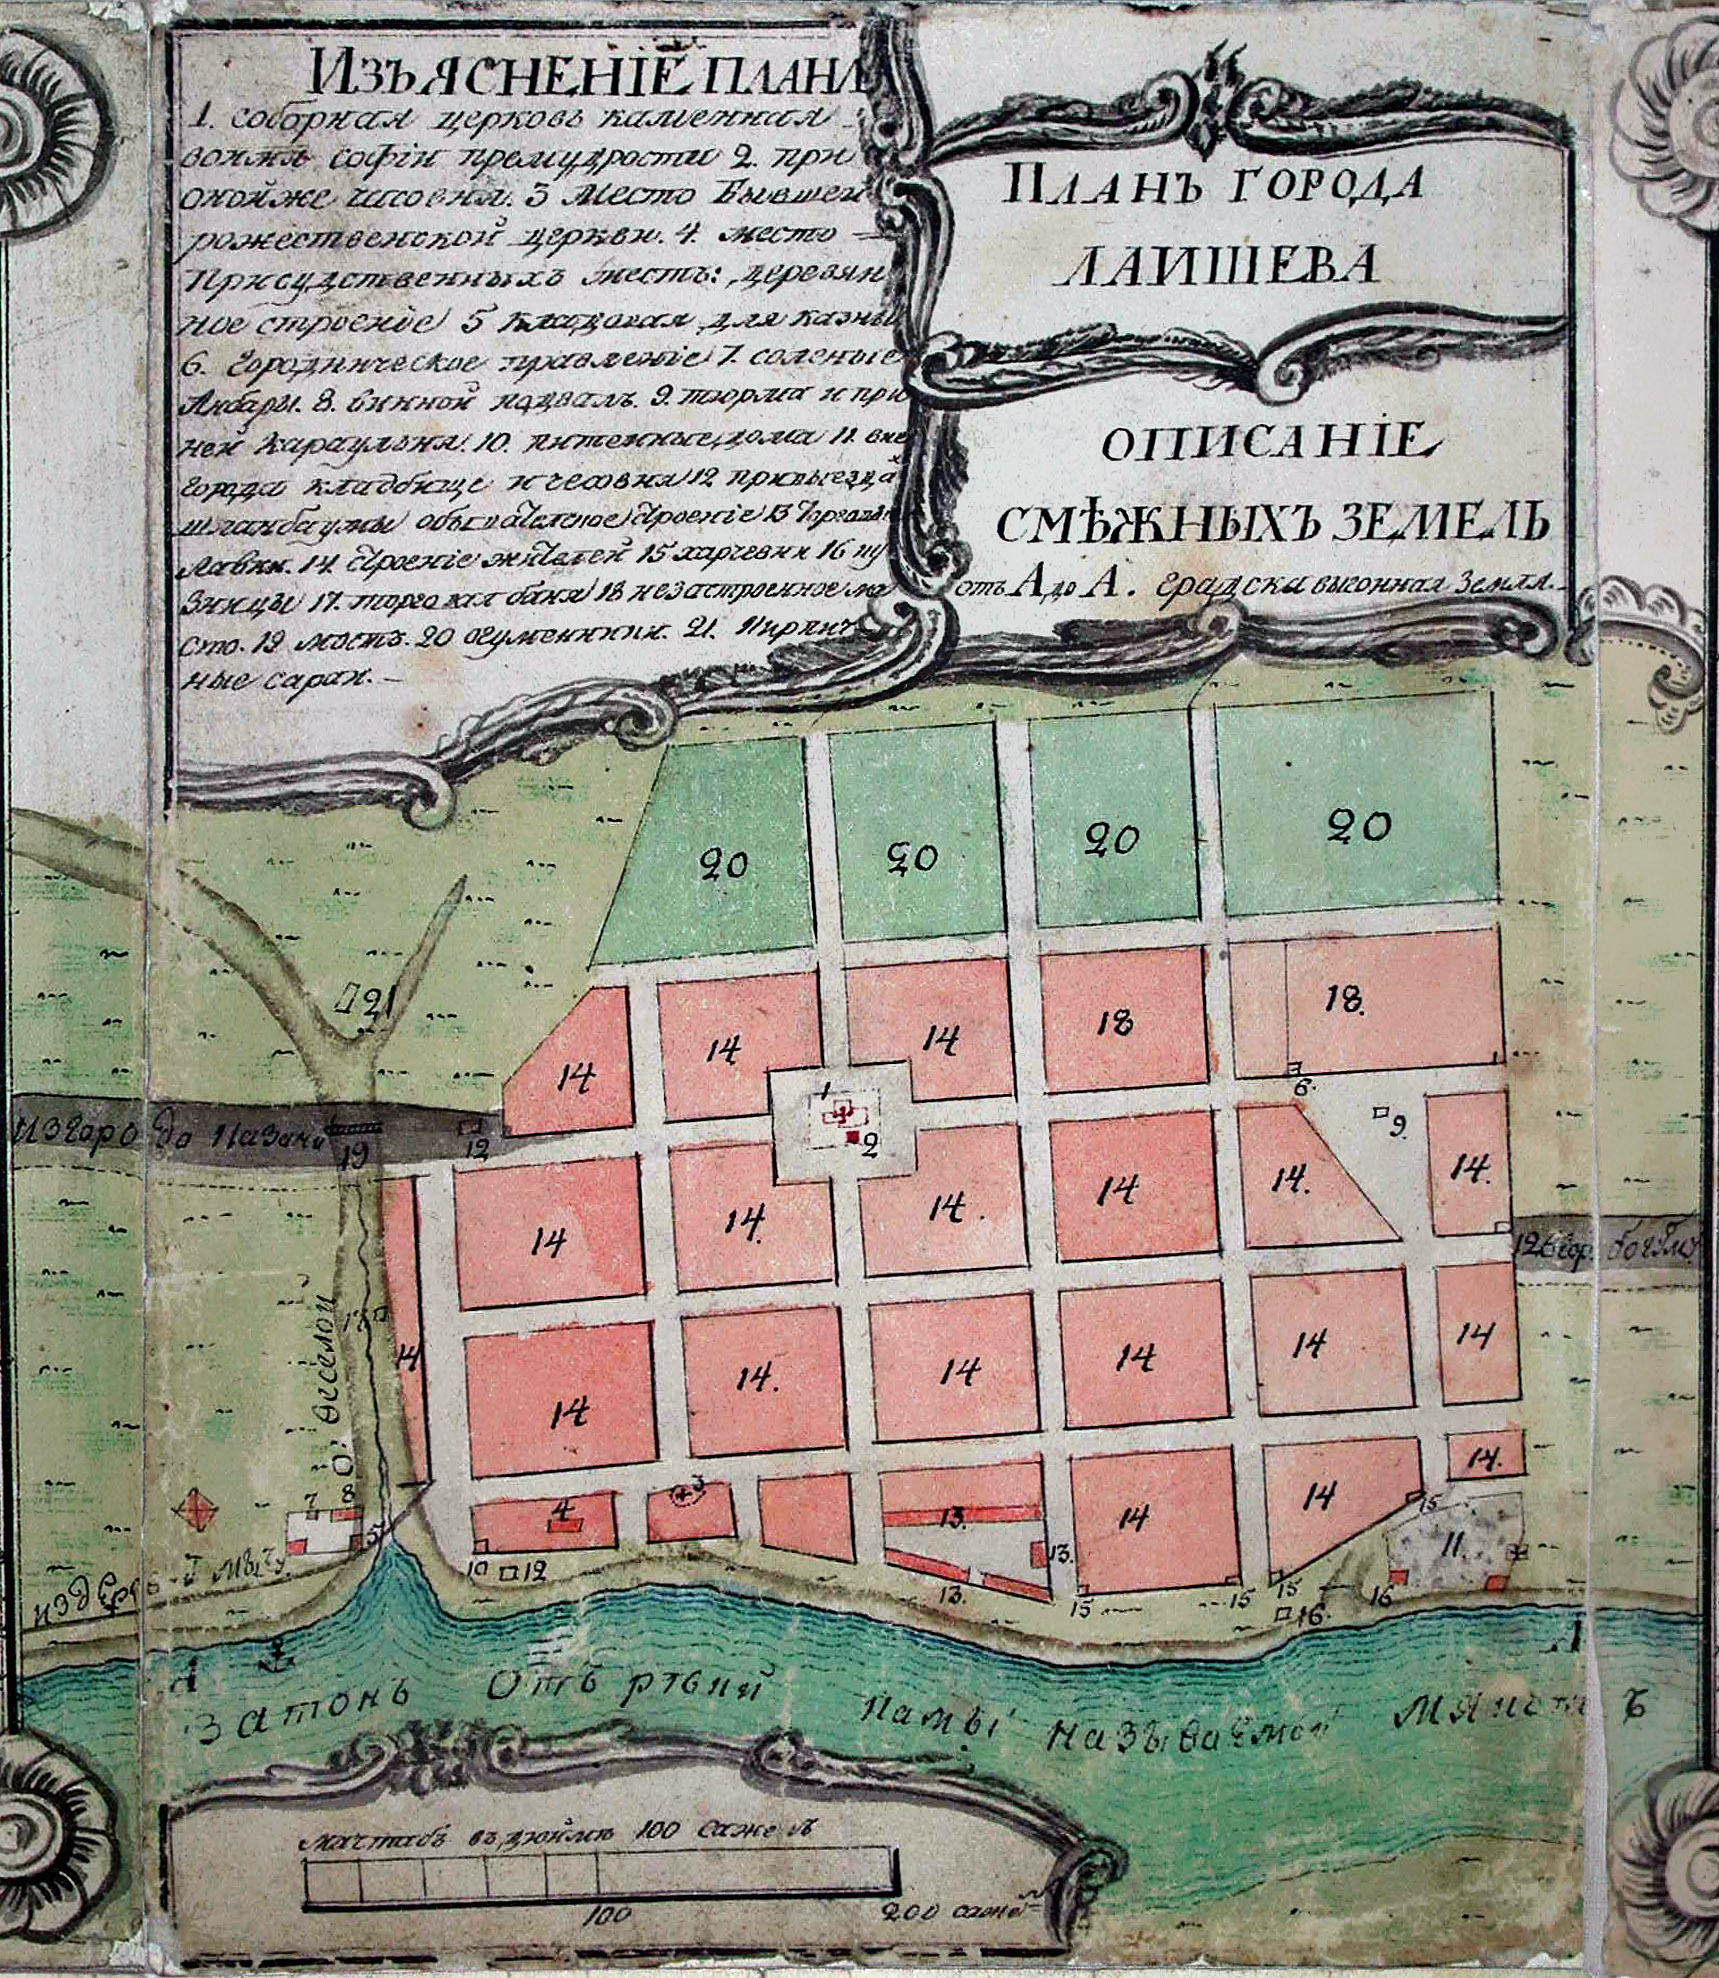 ИЗЪЯСНЕНІЕ ПЛАНА
1. соборная церковь каменная
софіи премудрости 2. при
оной же часовня. 3 Место Бывшей
рожественской церкви. 4. место
Присудственныхъ местъ: деревян
ное строеніе 5 кладовая для казны
6. Городническое правленіе 7. соленые
Анбары. 8. винной подвалъ. 9. тюрма и при
ней караульня. 10. питейные дома 11. вне
города кладбище и часовня 12 при выезда
шланбаумы обывателское строеніе 13 Торговые
лавки. 14. строеніе жителей 15 харчевни 16 ку
зницы 17. торговая баня 18 незастроенное ме
сто. 19. мостъ. 20 огуменники. 21. Кирпич
ные сараи.
ПЛАНЪ ГОРОДА
ЛАИШЕВА
ОПИСАНІЕ
СМѢЖНЫХЪ ЗЕМЕЛЬ
отъ А до А. градска выгонная земля.
20 20 20 20
21
14 14 14 18 18.
1
2
6.
9.
из горо да Казани
19
12
14 14. 14. 14 14. 14.
12
14
14 14. 14 14 14 14
7 8 5
4 3 13. 14 14 14.
15
11.
13.
10 12
13. 15 15 15 16
16.
А
А
Затонъ Отъ рѣки Камы называемой
мачтабъ въ дюймѣ 100 саженъ
100
200 сажен